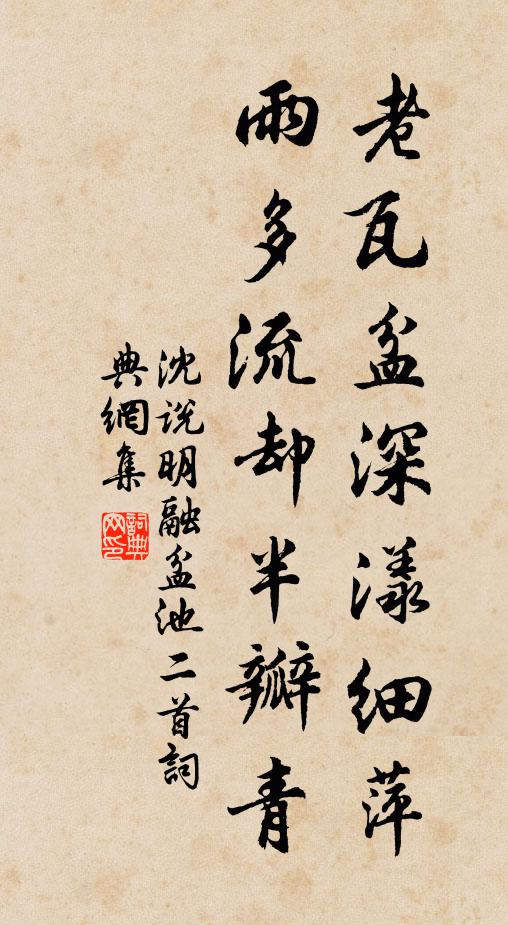 老瓦盆深漾細萍
雨多流却半瓣青
沈說明融盆池二首詞
典網集
詞典網印